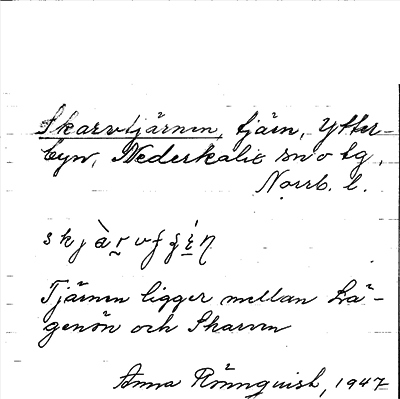 Skarvtjärnen, tjärn, Ytter-
byn, Nederkalix sn o tg,
Norrb. l.
Tjärnen ligger mellan Lå-
genön och Skarven
Anna Rönnquist, 1947